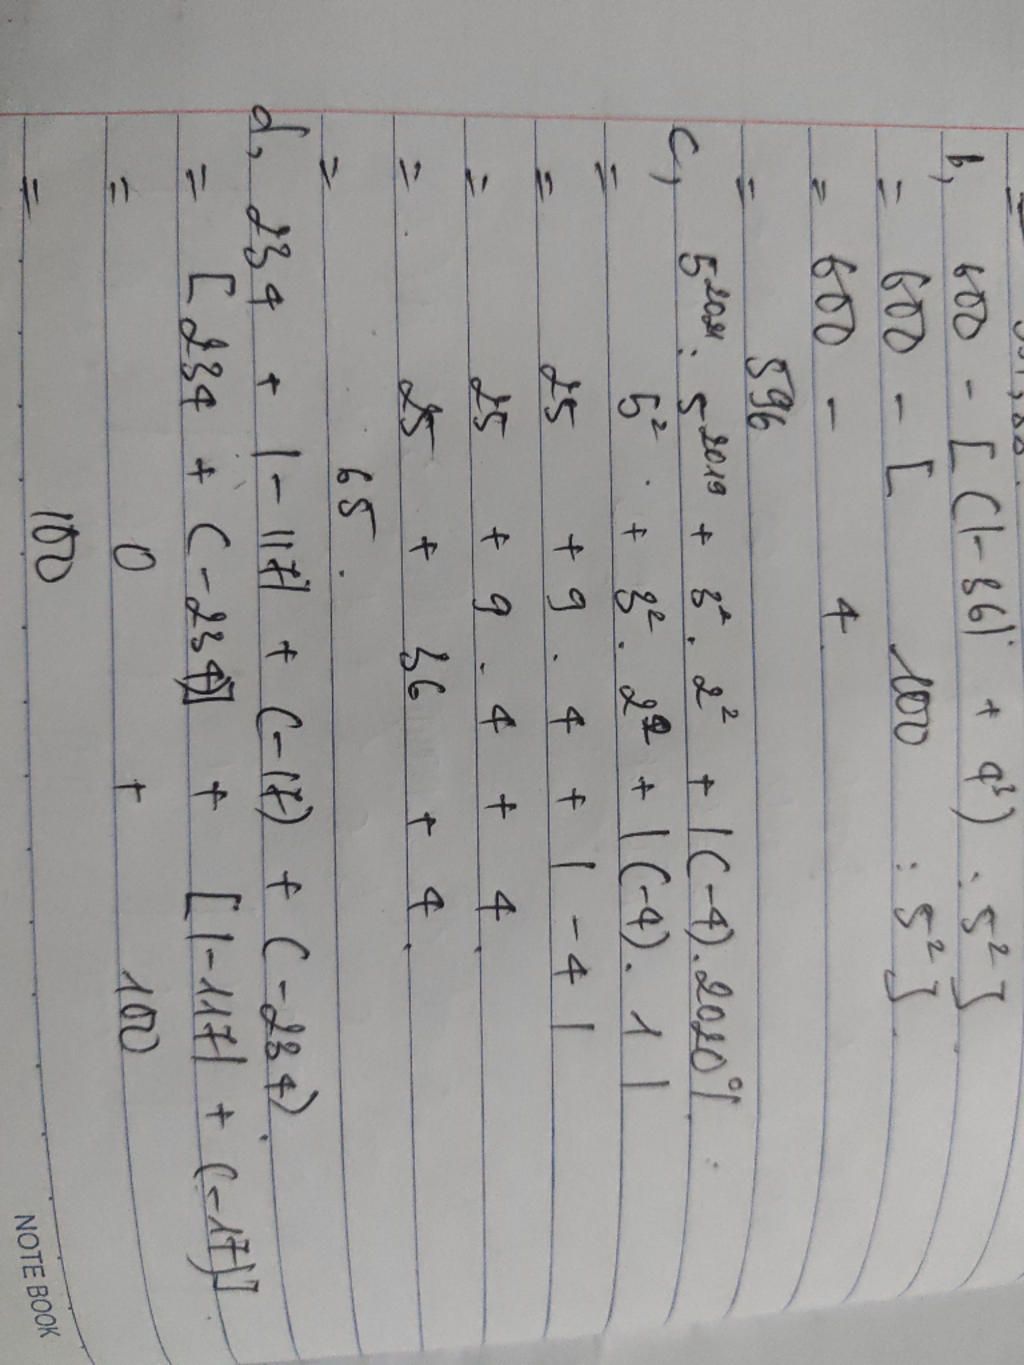 b, 600 - [(|-36| + 4³) : 5²]
= 600 - [ 100 : 5²]
= 600 - 4
= 596
c, 5²⁰²¹ : 5²⁰¹⁹ + 3². 2² + |(-4).2020⁰|
= 5² + 3². 2² + |(-4). 1|
= 25 + 9 . 4 + |-4|
= 25 + 9 . 4 + 4
= 25 + 36 + 4
= 65.
d, 234 + |-117| + (-17) + (-234)
= [234 + (-234)] + [|-117| + (-17)]
= 0 + 100
= 100
NOTE BOOK